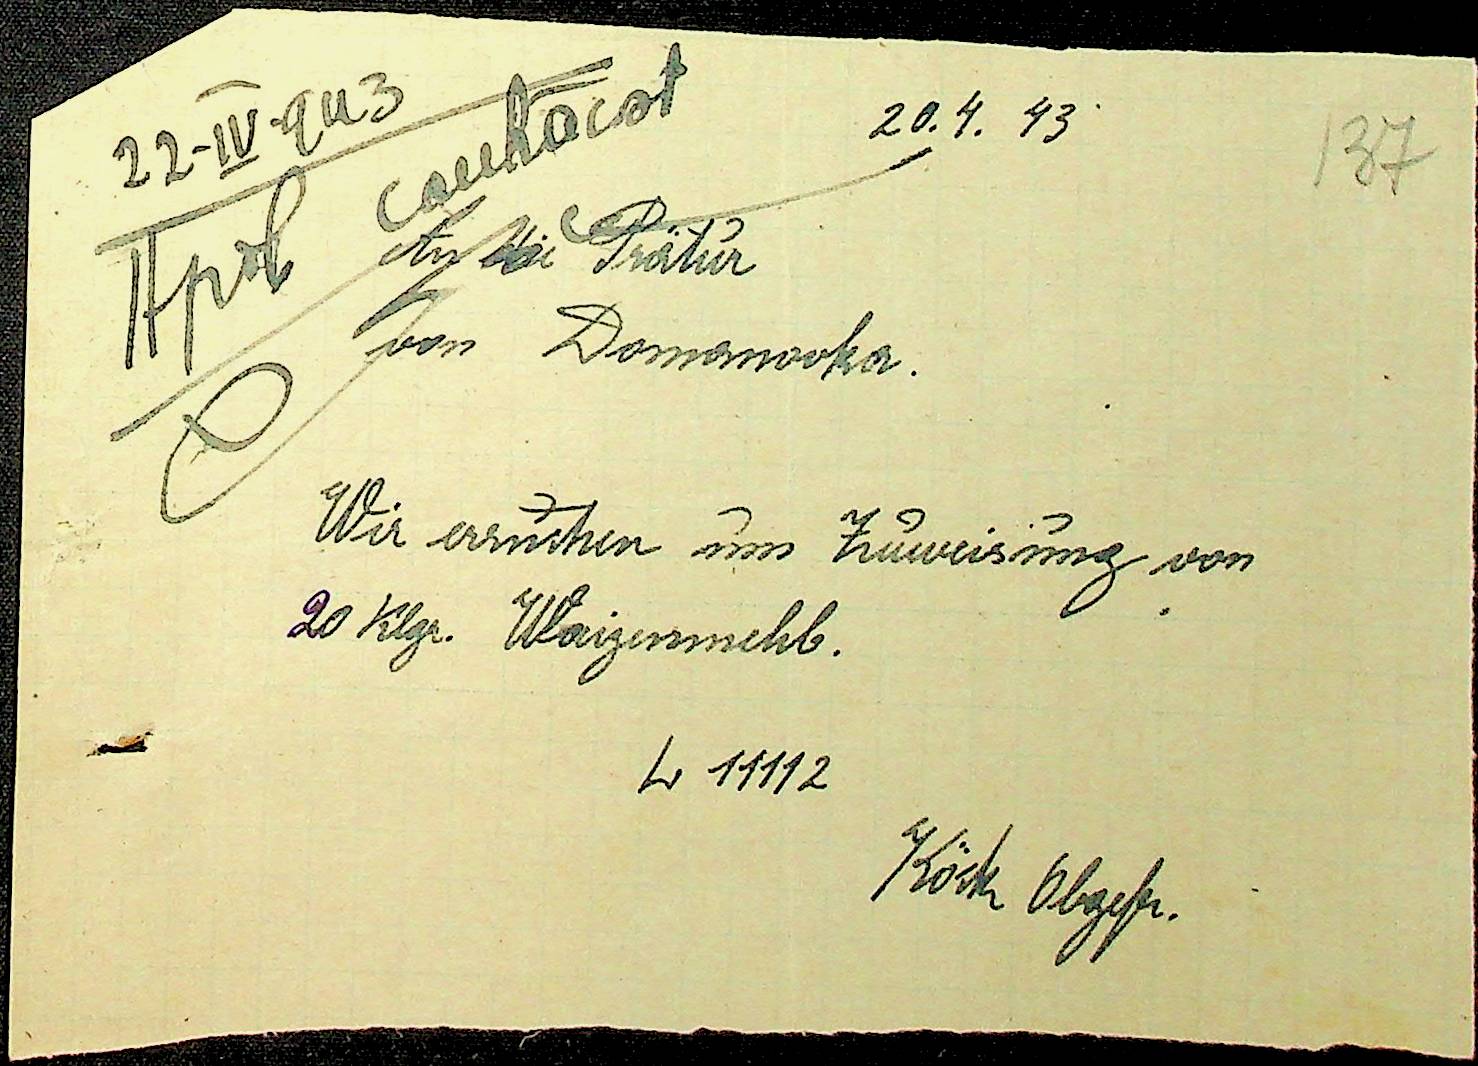 22-IV-943
20.4.43
137
An die Prätur
von Domanovka.
Wir ersuchen um Zuweisung von
20 Klgr. Waizenmehl.
L 11112
Köck Obgefr.